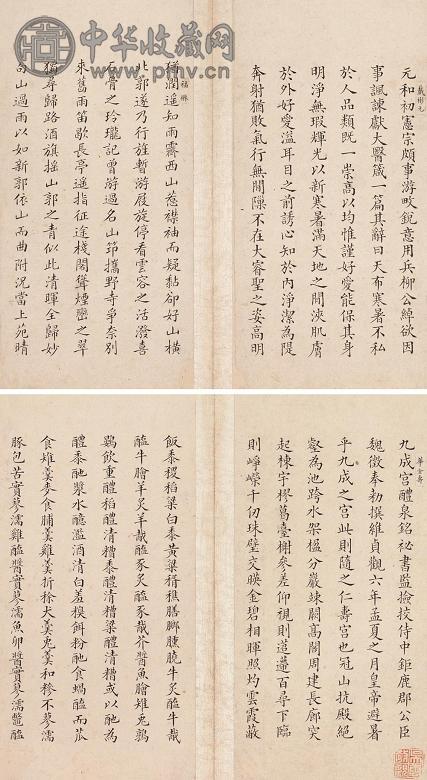 中华收藏网
戴彬元
元和初憲宗頗事游畋銳意用兵柳公綽欲因
事諷諫獻大醫箴一篇其辭曰天布寒暑不私
於人品類既一崇高以均惟謹好愛能保其身
明淨無瑕輝光以新寒暑滿天地之間浹肌膚
於外好愛溢耳目之前誘心知於內淨潔為隄
奔射猶敗氣行無間隟不在大睿聖之姿高明
猶潤遥知雨霽西山惹襟袖而疑黏卻好山橫
北郭遂乃行旌暫游屐旋停看雲容之活潑喜
石骨之玲瓏記曾游過名山笻攜野寺爭奈別
來舊雨笛歇長亭遥指征途棧閣聳煙巒之翠
猶尋歸路酒旗摇山郭之青似此清暉全歸妙
山過雨以如新郭依山而曲附況當上苑晴
九成宮醴泉銘祕書監撿挍侍中鉅鹿郡公臣
魏徵奉勑撰維貞觀六年孟夏之月皇帝避暑
乎九成之宮此則隨之仁壽宮也冠山抗殿絕
壑為池跨水架楹分巖竦闕高閣周建長廊
起棟宇膠葛臺榭參差仰視則迢遰百尋下臨
則崢嶸千仞珠璧交暎金碧相暉照灼雲霞蔽
飯黍稷稻粱白黍黃粱稰穛膳膷臐膮牛炙醢牛胾
醢牛膾羊炙羊胾醢豕炙醢豕胾芥醬魚膾雉兔鶉
鷃飲重醴稻醴清糟黍醴清糟粱醴清糟或以酏為
醴黍酏漿水醷濫酒清白羞糗餌粉酏食蝸醢而苽
食雉羹麥食脯羹雞羹折稌犬羹兔羹和糝不蓼濡
豚包苦實蓼濡雞醢醬實蓼濡魚卵醬實蓼濡鼈醢